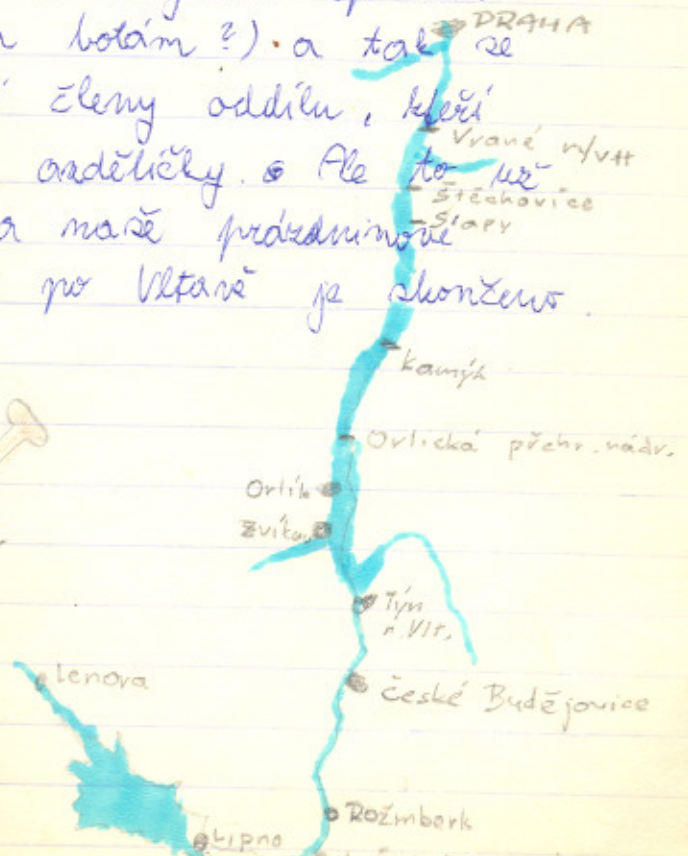 botám?). a tak se
členy oddílu, kteří
andělíčky. Ale to už
naše prázdninové
po Vltavě je skončeno.
PRAHA
Vrané n/Vlt
Štěchovice
Slapy
Kamýk
Orlická přehr. nádr.
Orlík
Zvíkov
Týn
n. Vlt.
Lenora
České Budějovice
Rožmberk
Lipno